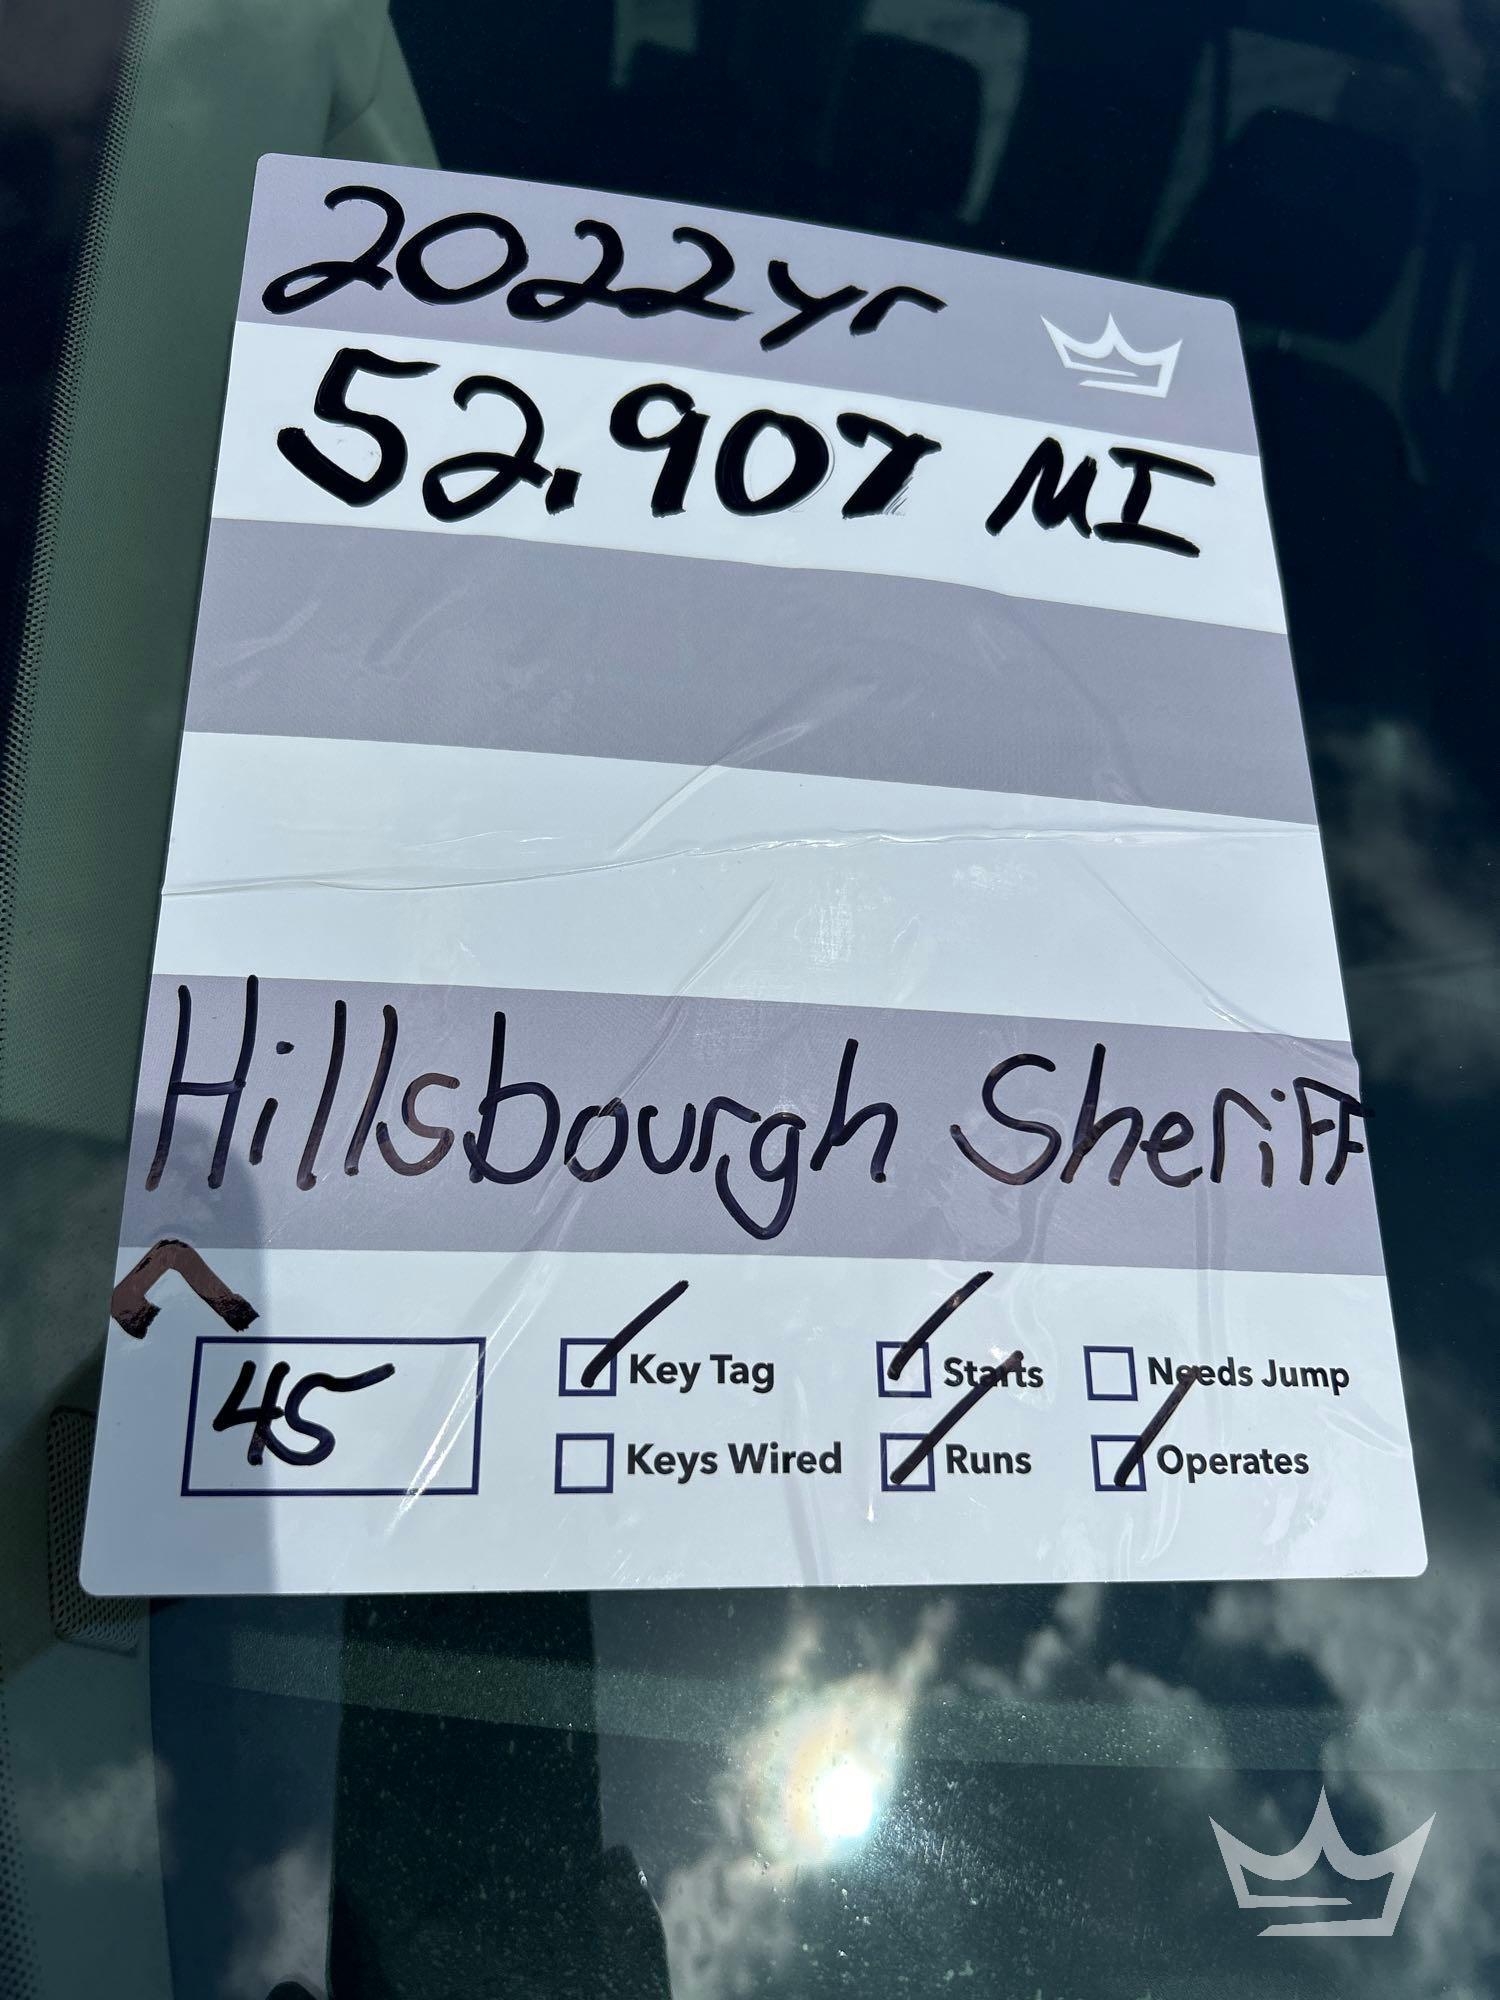 2022yr
52,907 MI
Hillsbourgh SheriFF
^
45
Key Tag Starts Needs Jump
Keys Wired Runs Operates